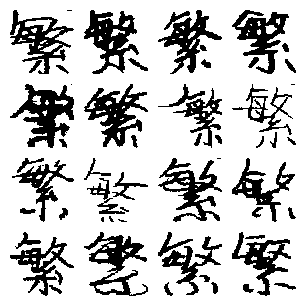 繁繁繁繁
繁繁繁繁
繁繁繁繁
繁繁繁繁